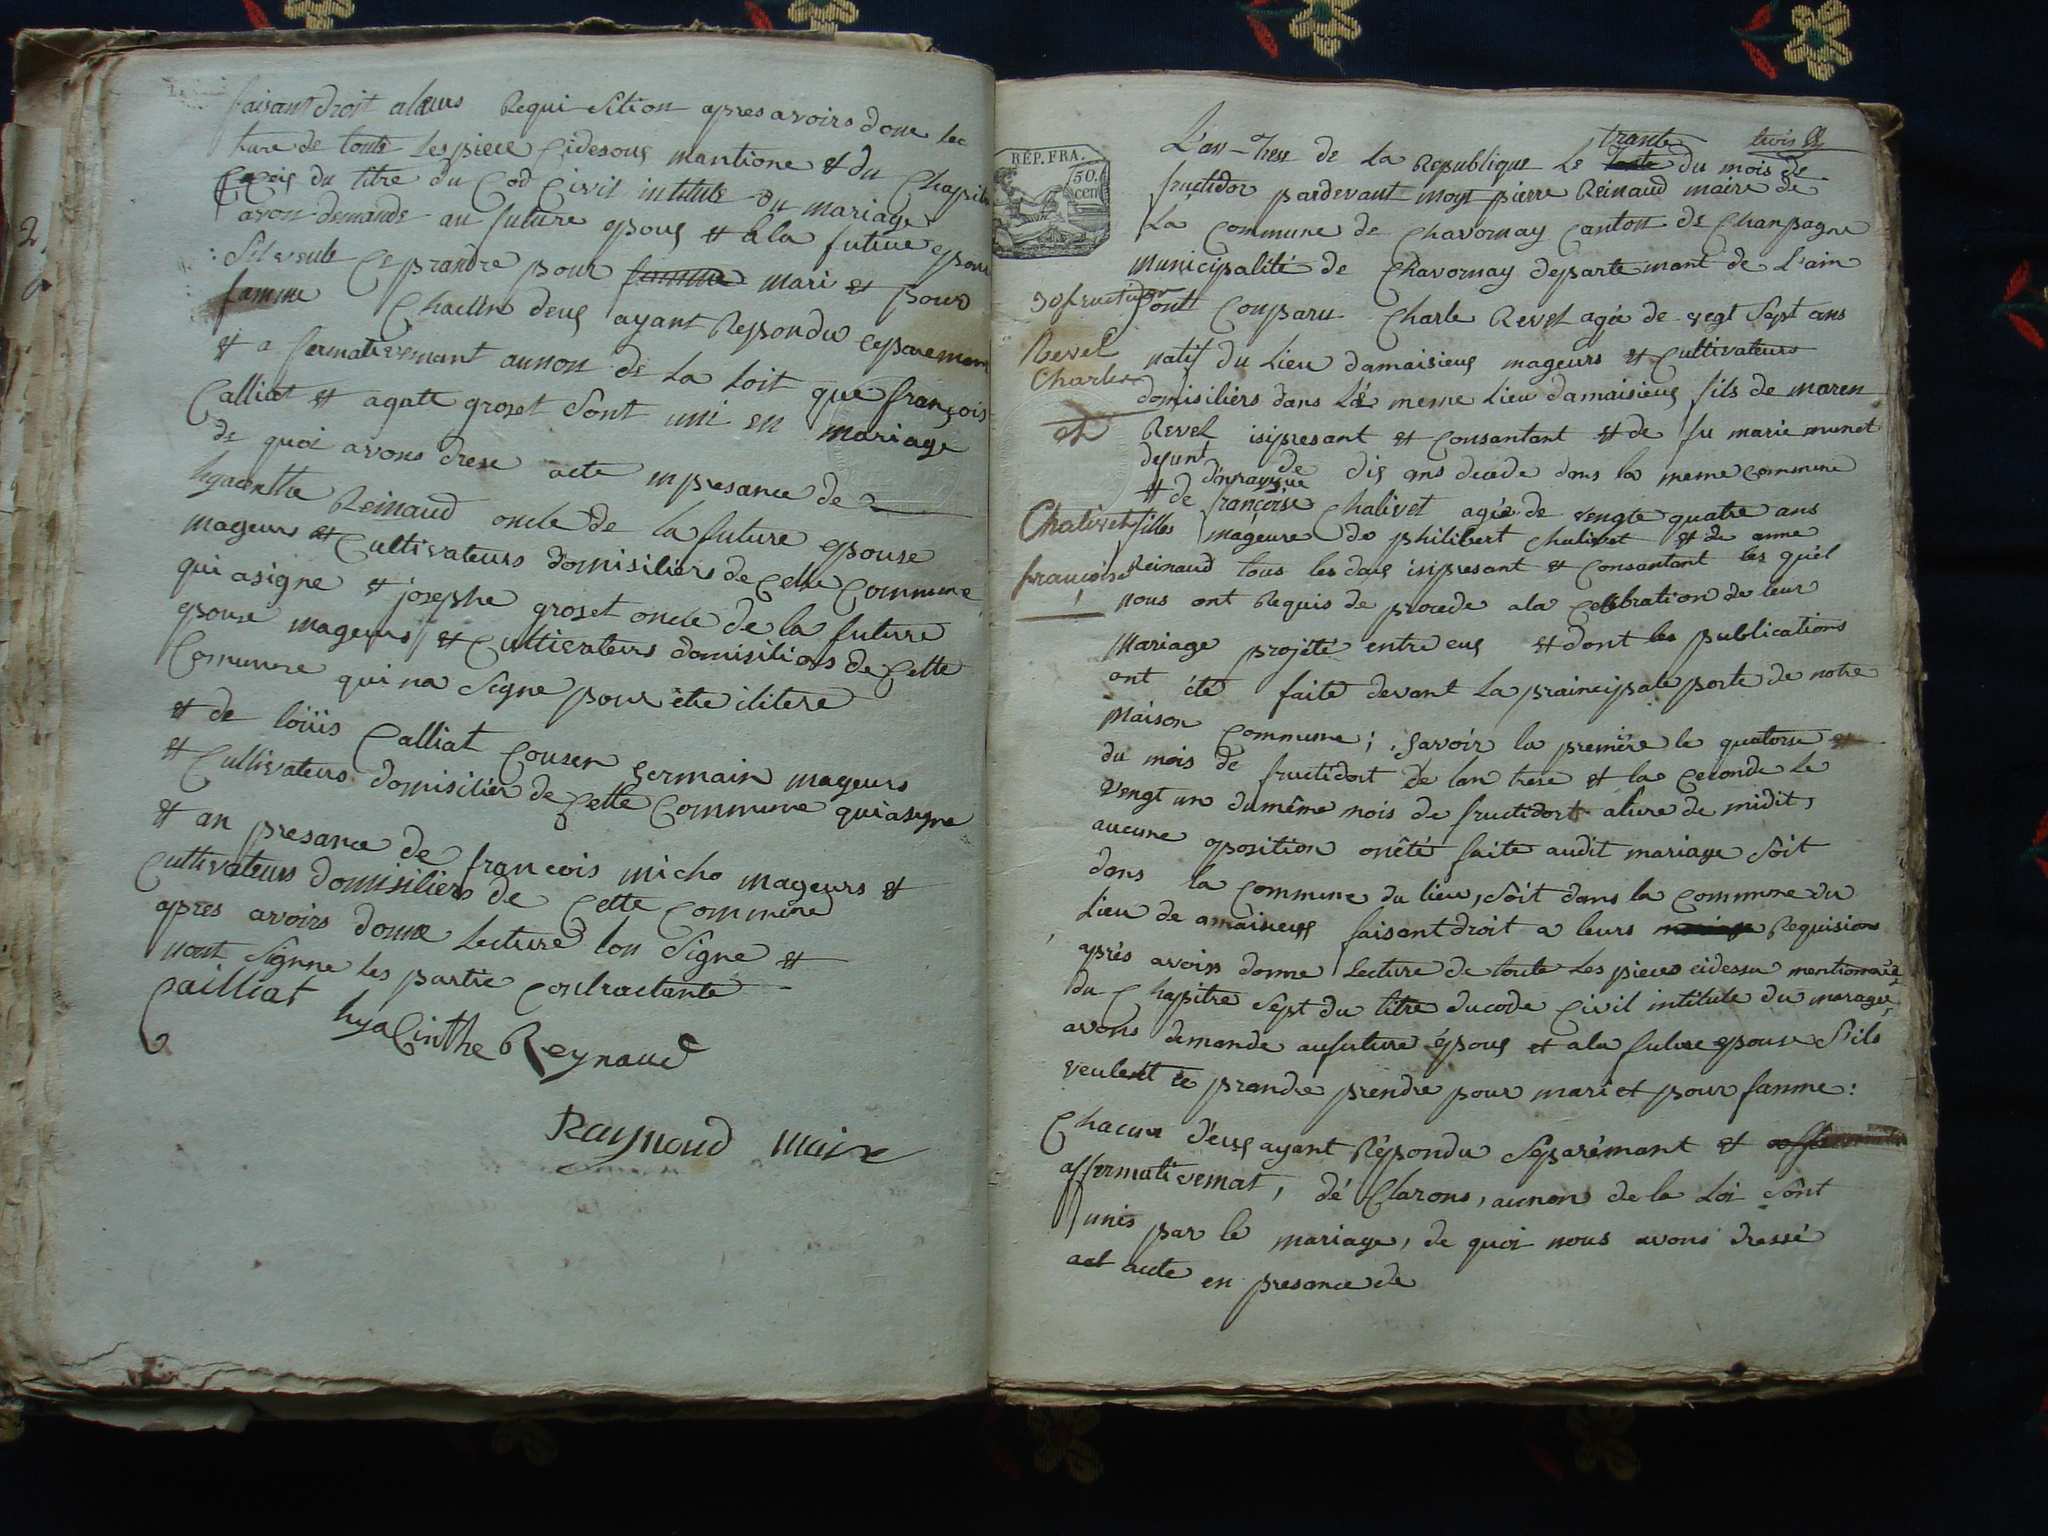 faisant droit aleurs Requisition apres avoirs done lec
ture de toute les piece Cidesous mantione et du Chapitre
du titre du Cod Civil intitule du mariage
avon demande au future epous et a la future epouse
Sil veule Ce prandre pour femme mari et pour
famme Chacun deus ayant Repondu Ceparemen
et a fermativemant aunon de La Loit que françois
Calliat et agate groset Sont uni en mariage
de quoi avons drese acte inpresance de
hyacinthe Reinaud oncle de la future epouse
mageurs et Cultivateurs domisiliers de Cette Commune
qui asigne et josephe groset oncle de la future
epouse mageurs et Cultivateurs domisiliers de Cette
Commune qui na Signe pour etre ilitere
et de loüis Calliat Cousen germain mageurs
et Cultivateurs domisilier de Cette Commune qui asigne
et an presance de francois micho mageurs et
Cultivateurs domisiliers de Cette Commune
apres avoirs donne Lecture lon Signe et
nont Signne les partie Contractante
Cailliat hyaCinthe Reynaud
Raynaud maire
trante trois
RÉP. FRA.
50.
cen
L'an trese de La Republique Le du mois de
fructidor pardevant moyt pierre Reinaud maire de
La Commune de Chavornay Canton de Chanpagne
municipalité de Chavornay departemant de L'ain
30 fructidor
Sont Conparu Charle Revel agée de vegt Sept ans
Revel
Charles
natif du Lieu damaisieus mageurs et Cultivateurs
domisiliers dans Le meme Lieu damaisieus fils de maren
et
Revel isipresant et Consantant et de fu marie munet
defunt de dis ans decede dans la meme Commune
et de françoise Chalivet agée de vengte quatre ans
Chalivet
françoise
filles mageure de philibert Chalivet et de anne
Reinaud tous les daus isipresant et Consantant les quél
nous ont Requis de procede ala Celebration de leur
Mariage projété entre eus et dont les publications
ont été faite devant La praincipale porte de notre
Maison Commune; Savoir la premiere le quatorse
du mois de fructidort de lan trese et la Ceconde Le
vengt un dumême mois de fructidort alure de midit,
aucune oposition onété faite audit mariage Soit
dans la Commune du lieu, Soit dans la Commune du
Lieu de amaisieus faisant droit a leurs Requisions
aprés avoirs donne Lecture de toute Les pieces cidessu mentionné
du Chapitre Sept du titre ducode Civil intitule du marage,
avons demande aufuture époux et ala future epouse S'ils
veulent ce prandre prendre pour mari et pour famme:
Chacun d'eus ayant Répondu Séparémant et
affermativemat, dé Clarons, aunon de la Loi Sont
unis par le mariage, de quoi nous avons dressé
act acte en presance de